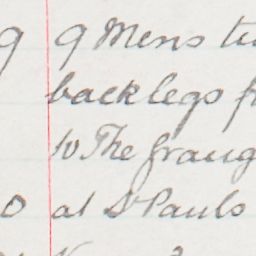 9 9 Mens tu
back legs f
to The Grang
0 at St Pauls